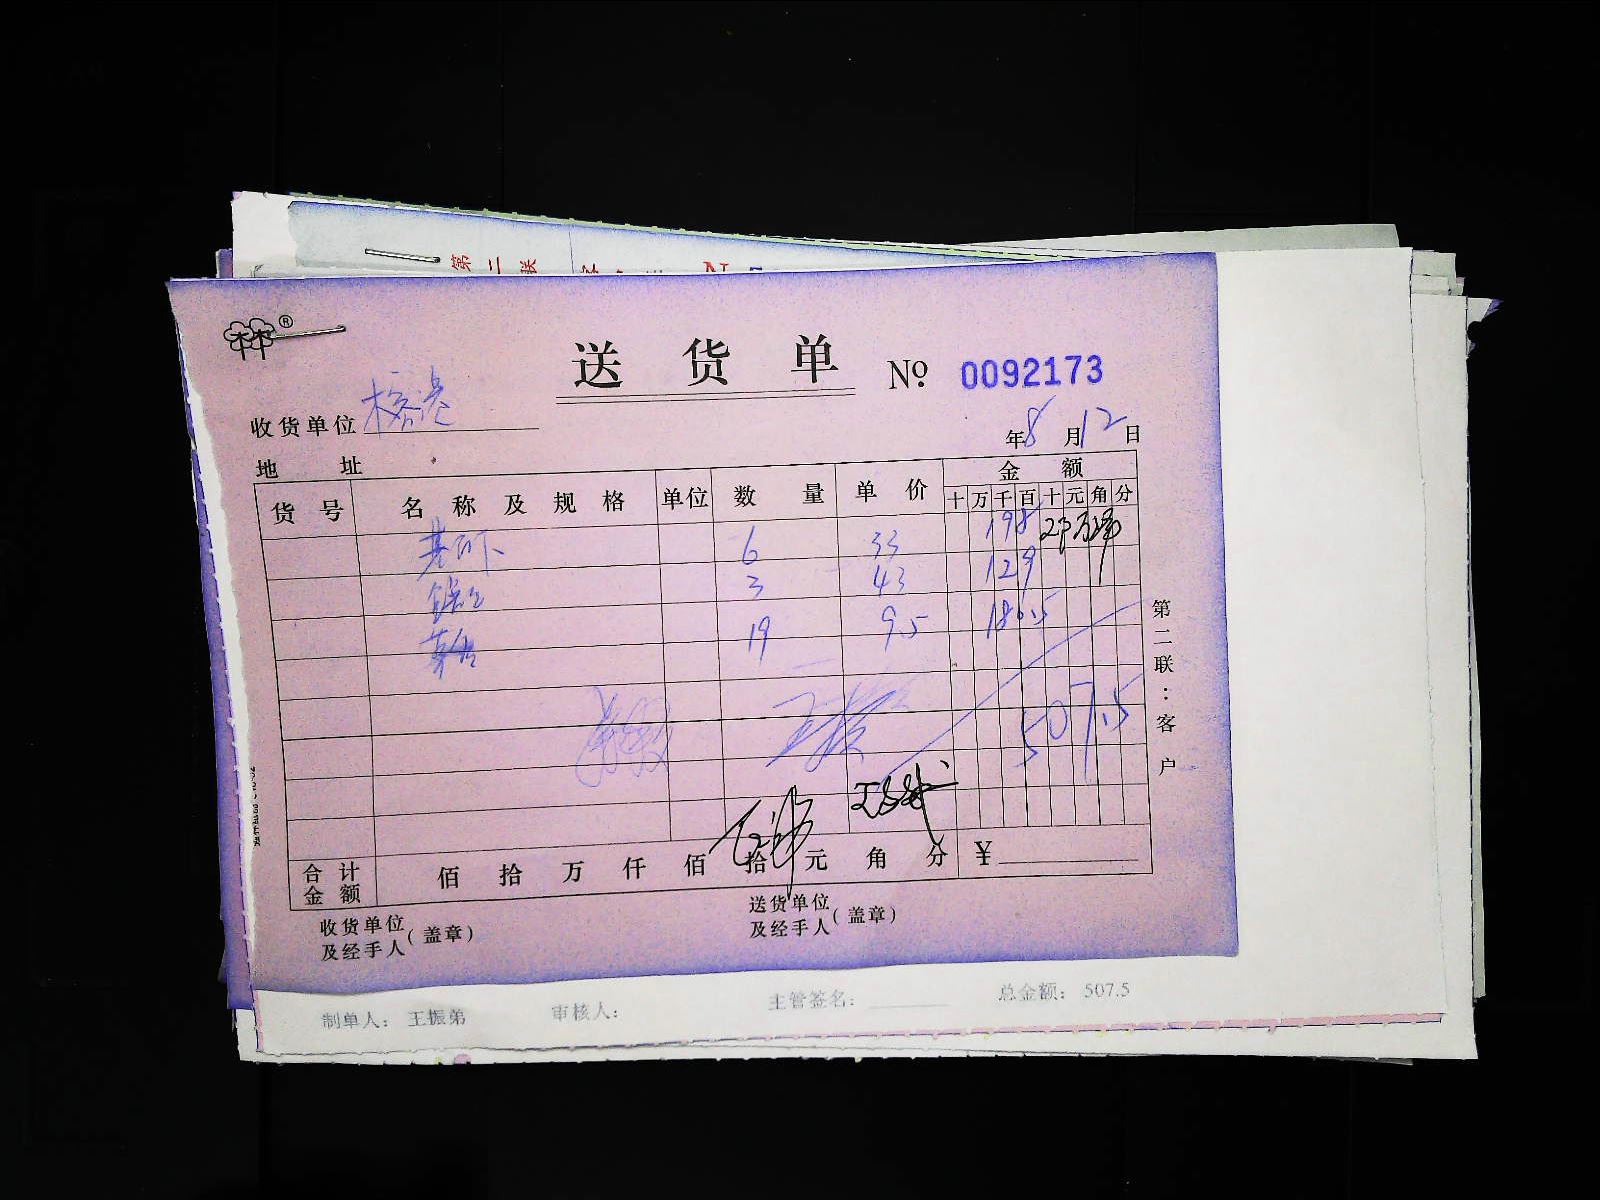 第二联
送货单 № 0092173
收货单位 榕港
年8月12日
地 址
货号 名称及规格 单位 数量 单价 金额
十万千百十元角分
基围下 6 33 198
3 43 129
19 9.5 180.5
507.5
第二联：客户
合计金额 佰 拾 万 仟 佰 拾 元 角 分 ¥
收货单位及经手人(盖章) 送货单位及经手人(盖章)
制单人： 王振弟 审核人： 主管签名： 总金额： 507.5